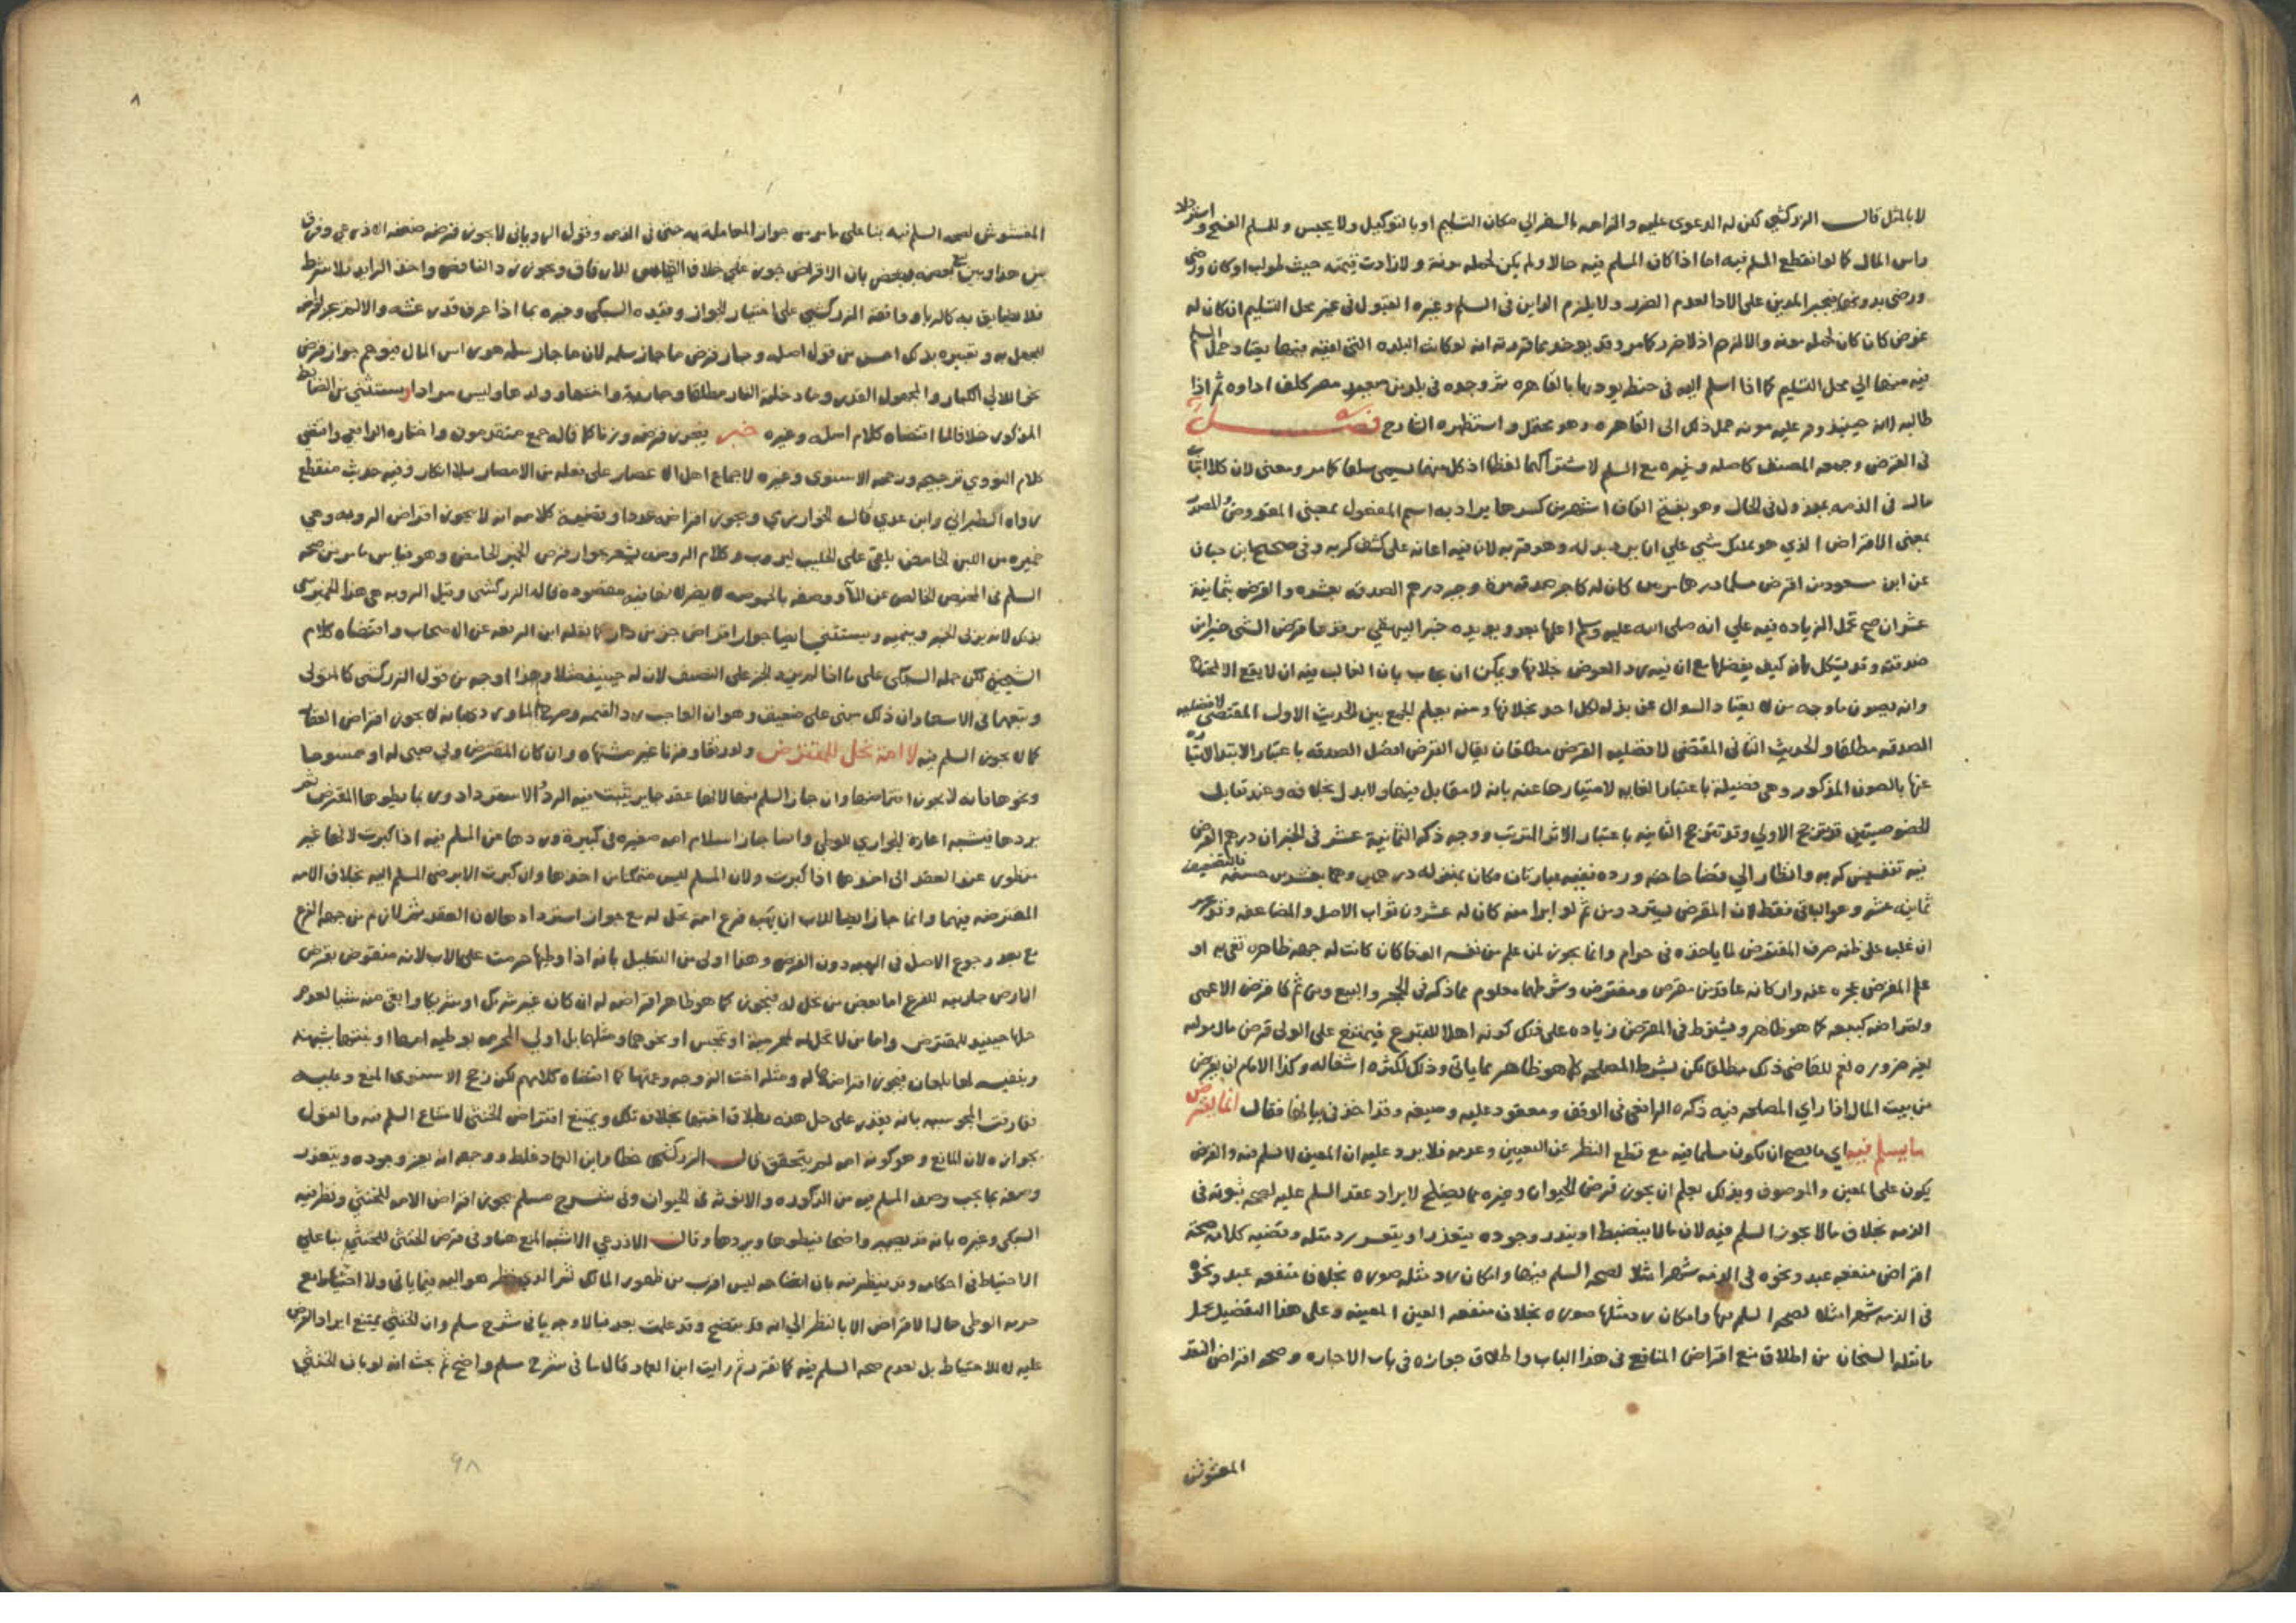 لا بالمثل قال الزركشي لكن له الدعوى عليه والزامه بالسفر الي مكان التسليم او بالتوكيل ولا يحبس وللمسلم الفسخ واسترداد
راس المال كما لو انقطع المسلم فيه اما اذا كان المسلم فيه حالا ولم يكن لحمله مونة ولا زادت قيمته حيث طولب او كان ورضي
ورضي بدونها فيجبر المدين على الادا لعدم الضرر ولا يلزم الداين في السلم وغيره القبول في غير محل التسليم ان كان له
غرض كان كان لحمله مونة والا لزم اذ لا ضرر كما مر وقد يوخذ مما قررته انه لو كانت البلدة التي لقيه فيها يعتاد حمل المسلم
فيه منها الي محل التسليم كما اذا اسلم اليه في حنطة يوديها بالقاهره ثم وجده في بلد من صعيد مصر كلف اداوه ثم اذا
طالبه حينيذ وجب عليه مونة حمل ذلك الى القاهره وهو محتمل واستظهره الشارح فصل
في القرض وجمعه المصنف كاصله وغيره مع السلم لاشتراكهما لفظا اذ كل منهما يسمى سلفا كما مر ومعنى لان كلا اثبات
مال في الذمه بمبذول في الحال وهو بفتح القاف اشهر من كسرها يراد به اسم المفعول بمعنى المقروض والمصدر
بمعنى الاقراض الذي هو تمليك شي علي ان يرد بدله وهو قربه لان فيه اعانة على كشف كربه وفي صحيح ابن حبان
عن ابن مسعود من اقرض مسلما درهما مرتين كان له كاجر صدقة مرة وخبر درهم الصدقه بعشره والقرض بثمانية
عشر ان صح تحمل الزياده فيه علي انه صلى الله عليه وسلم اعلمها بعد ويويده خبر البيهقي مرفوعا قرض الشي خير من
صدقته وقد يشكل بانه كيف يفضلها مع ان فيه رد العوض بخلافها ويمكن ان يجاب بان الغالب فيه ان لا يقع الا لمحتاج
وانه يصون ماء وجه من لا يعتاد السوال عن بذله لكل احد بخلافها ومنه يعلم الجمع بين الحديث الاول المقتضي لافضلية
الصدقه مطلقا والحديث الثاني المقتضي لافضليه القرض مطلقا بان يقال القرض افضل الصدقه باعتبار الابتدا لامتيازه
عنها بالصون المذكور وهي فضيلة باعتبار الغايه لامتيازها عنه بانه لا مقابل فيها ولا بدل بخلافه وعند تقابل
الخصوصيتين قد ترجح الاولي وقد ترجح الثانيه باعتبار الاثر المترتب ووجه ذكر الثمانية عشر في الخبر ان درهم القرض
فيه تنفيس كربه وانظار الي قضا حاجته ورده ففيه عبارتان فكان بمنزلة درهمين وهما بعشرين حسنه فالتضعيف
ثمانيه عشر وهو الباقي فقط لان المقرض يسترد ومن ثم لو ابرا منه كان له عشرون ثواب الاصل والمضاعفه وقد يحرم
ان غلب على ظنه صرف المقترض لما ياخذه في حرام وانما يجوز لمن علم من نفسه الوفا كان كانت له جهه ظاهره تفي به او
علم المقرض عجزه عنه واركانه عاقد من مقرض ومقترض وشرطهما معلوم مما ذكر في الحجر والبيع ومن ثم كان قرض الاعمى
واقتراضه كبيعه كما هو ظاهر ويشترط في المقرض زياده على ذلك كونه اهلا للتبرع فيمتنع على الولى قرض مال موليه
لغير ضروره نعم للقاضي ذلك مطلقا لكن بشرط المصلحه كما هو ظاهر مما ياتي وذلك لكثره اشغاله وكذا الامام ان يقرض
من بيت المال اذا راي المصلحه فيه ذكره الرافعي في الوقف ومعقود عليه وصيغه وقد اخذ في بيانها فقال انما يقرض
ما يسلم فيه اي ما يصح ان يكون مسلما فيه مع قطع النظر عن التعيين وعدمه فلا يرد عليه ان المعين لا يسلم فيه والقرض
يكون على المعين والموصوف وبذلك يعلم ان يجوز قرض الحيوان وغيره مما يصلح لايراد عقد السلم عليه لصحه ثبوته في
الذمه بخلاف مالا يجوز السلم فيه لان مالا ينضبط او يندر وجوده يتعذر او يتعسر رد مثله وقضيه كلامه صحة
اقراض منفعه عبد ونحوه في الذمه شهرا مثلا لصحه السلم فيها وامكان رد مثله صوره بخلاف منفعه عبد ونحوه
في الذمه شهرا مثلا لصحه السلم فيها وامكان رد مثلها صوره بخلاف منفعه العين المعينه وعلى هذا التفصيل يحمل
ما نقله الشيخان من اطلاق منع اقراض المنافع في هذا الباب واطلاق جوازه في باب الاجاره وصحه اقراض النقد
المغشوش
٨
المغشوش لصحه السلم فيه بنا على ما مر من جواز المعاملة به حتى في الذمه وقول الروياني لا يجوز قرضه ضعفه الاذرعي وفرق
بين هذا وبين بيع بعضه ببعض بان الاقراض جوز على خلاف القياس للارفاق ويجوز رد الناقص واخذ الزايد بلا شرط
فلا مضايق به كالربا ووافقه الزركشي على اختيار الجواز وقيده السبكي وغيره بما اذا عرف قدر غشه والا لم يجز قرضه
للجهل به وتعبيره بذلك احسن من قول اصله وجاز قرض ما جاز سلمه لان ما جاز سلمه هو راس المال فيوهم جواز قرض
نحو اللالي الكبار والمجهول القدر وما دخلته النار مطلقا وجاريه واختها او ولدها وليس مرادا ويستثني من الضابط
المذكور خلافا لما اقتضاه كلام اصله وغيره خبز يجوز قرضه وزنا كما قاله جمع متقدمون واختاره الرافعي واقتضي
كلام النووي ترجيحه ورجحه الاسنوي وغيره لاجماع اهل الاعصار على فعله في الامصار بلا انكار وفيه حديث منقطع
رواه الطبراني وابن عدي قال الخوارزمي ويجوز اقراضه عددا وقضية كلامه انه لا يجوز اقراض الروبه وهي
خميره من اللبن الحامض يلقى على الحليب ليروب وكلام الروضه يشعر بجواز قرض الخمير الحامض وهو قياس ما مر من صحه
السلم في المخيض الخالص عن الماء ووصفه بالحموضه لا يضر لانها فيه مقصوده قاله الزركشي وقيل الروبه هي هذا الخمير سمى
بذلك لانه يربى الخبز وينميه ويستثني ايضا جواز اقراض جزء من دار كما نقله ابن الرفعه عن الاصحاب واقتضاه كلام
الشيخين لكن حمله السبكي على ما اذا لم يزد الجزء على النصف لان له حينيذ مثلا وهذا اوجه من قول الزركشي كالمتولى
وتبعهما في الاسعاد ان ذلك مبني على ضعيف وهو ان الواجب رد القيمه وصرح الماوردي بانه لا يجوز اقراض العقار
كما لا يجوز السلم فيه لا امة تحل للمقترض ولو رتقا وقرنا غير مشتهاه وان كان المقترض ولي صبي له او ممسوحا
ونحوها فانه لا يجوز اقتراضها وان جاز السلم فيها لانه عقد جايز يثبت فيه الرد والاسترداد وربما يطوها المقترض ثم
يردها فيشبه اعارة الجواري للوطي وانما جاز اسلام امه صغيره في كبيرة وردها عن المسلم فيه اذا كبرت لانها غير
منظور عند العقد الى اخذها اذا كبرت ولان المسلم ليس متمكنا من اخذها وان كبرت الا برضى المسلم اليه بخلاف الامه
المقترضه فيهما وانما جاز ايضا للاب ان يهب فرع امة تحل له مع جواز استردادها لان العقد ثم لازم من جهه الفرع
مع بعد رجوع الاصل في الهبه دون القرض وهذا اولى من التعليل بانه اذا وطيها حرمت على الاب لانه منقوض بقرض
الارض جاريه للفرع اما بعض من تحل له فيجوز كما هو ظاهر اقراضه له ان كان غير شريك او شريكا وابقى منه شيا لعدم
حلها حينيذ للمقترض واما من لا تحل له لمحرمية او تمجس او نحوهما ومثلها بل اولي المحرمه بوطيه امها او بنتها بشبهة
ونفيه لها بلعان فيجوز اقتراضها له ومثله اخت الزوجه وعمتها كما اقتضاه كلامهم لكن رجح الاسنوي المنع وعليه
تفارق المجوسيه بانه يقدر على حل هذه بطلاق اختها بخلاف تلك ويمتنع اقتراض الخنثى لامتناع السلم فيه والقول
بجوازه لان المانع وهو كونه امه لم يتحقق قال الزركشي خطا وابن العماد غلط ووجهه انه يعز وجوده ويتعذر
وصفه بما يجب وصف المسلم فيه من الذكوره والانوثه في الحيوان وفي شرح مسلم يجوز اقراض الامه للخنثى ونظر فيه
السبكي وغيره بانه قد يصير واضحا فيطوها ويردها وقال الاذرعي الاشبه المنع هنا وفي قرض الخنثى للخنثى بنا على
الاحتياط في احكامه وقد ينظر فيه بان اتضاحه ليس اقرب من ظهور المالك ثم الذي نظر هو اليه فيما ياتي ولا احتياط مع
حرمه الوطى حال الاقراض الا بالنظر الى انه قد يتضح وقد علمت بعده فالاوجه ما في شرح مسلم وان الخنثى يمتنع ايراد القرض
عليه لا للاحتياط بل لعدم صحه السلم فيه كما تقرر ثم رايت ابن العماد قال ما في شرح مسلم واضح ثم بحث انه لو بان الخنثى
٩٨